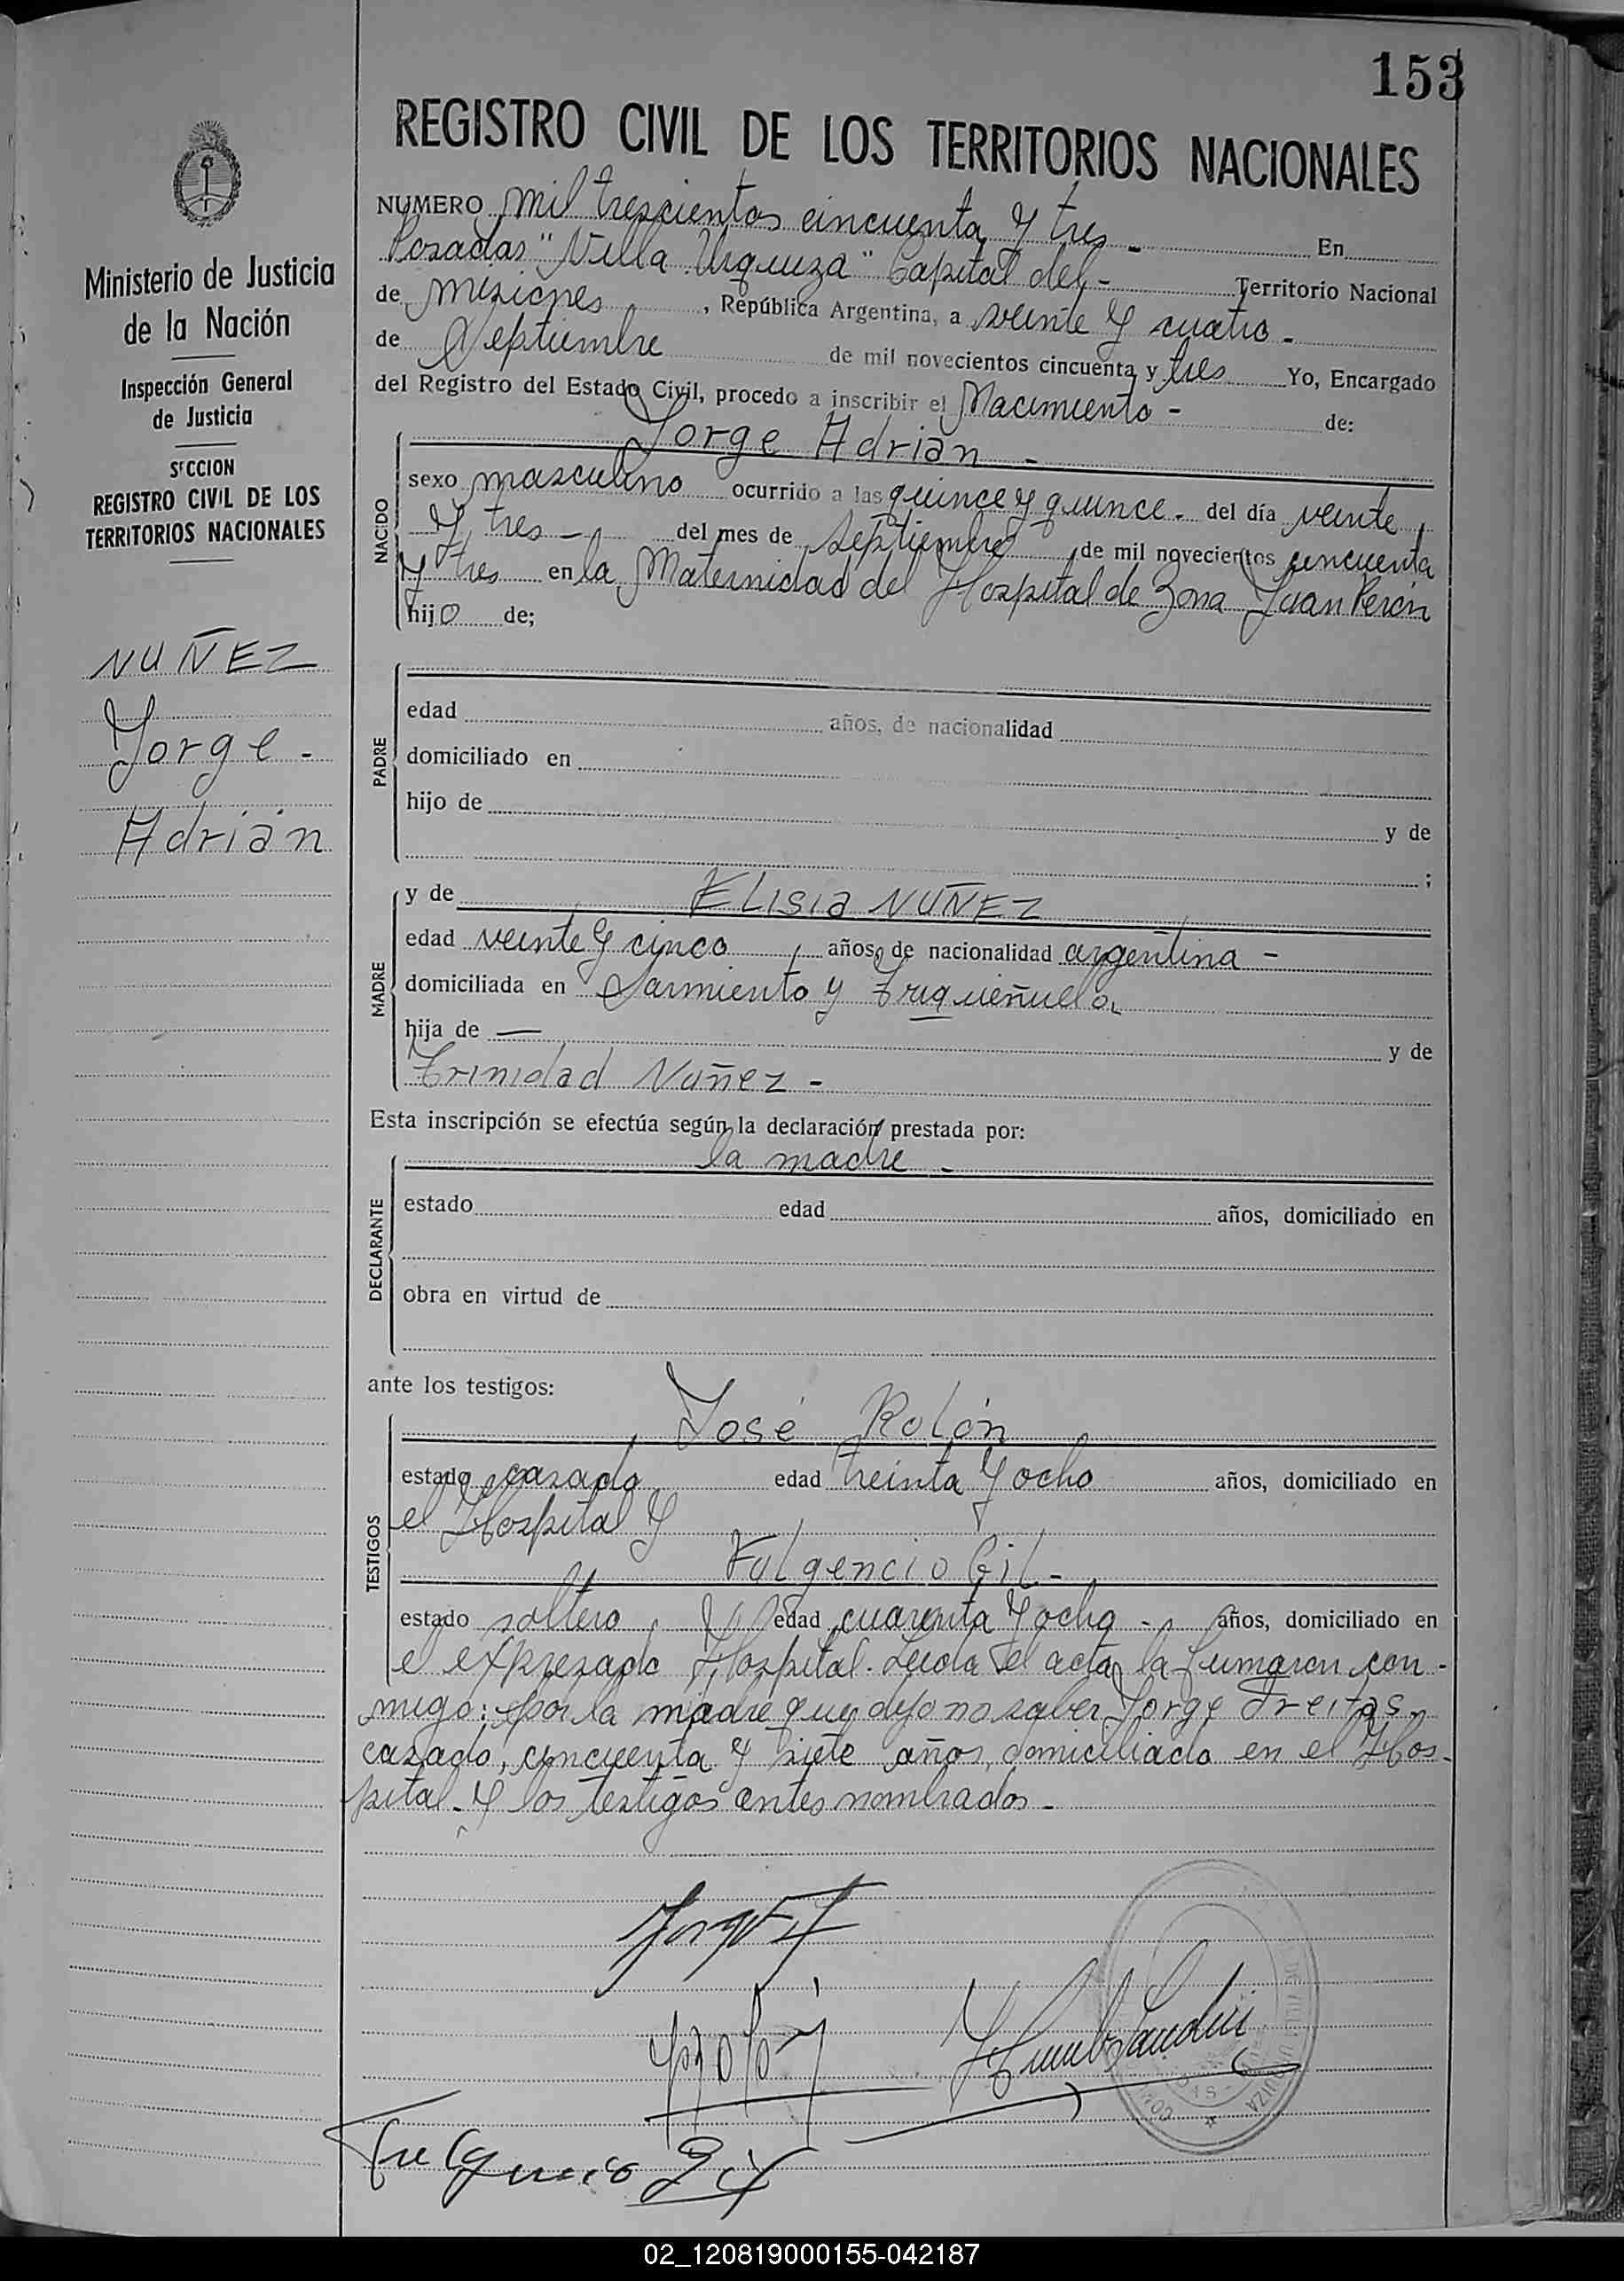 153
REGISTRO CIVIL DE LOS TERRITORIOS NACIONALES
Ministerio de Justicia
de la Nación
Inspección General
de Justicia
SECCION
REGISTRO CIVIL DE LOS
TERRITORIOS NACIONALES
NUÑEZ
Jorge -
Adrián
NUMERO mil trescientos cincuenta y tres - En
Posadas "Villa Urquiza" Capital del - Territorio Nacional
de misiones, República Argentina, a veinte y cuatro -
de Septiembre de mil novecientos cincuenta y tres Yo, Encargado
del Registro del Estado Civil, procedo a inscribir el Nacimiento - de:
NACIDO
Jorge Adrián -
sexo masculino ocurrido a las quince y quince - del día veinte
y tres - del mes de septiembre de mil novecientos cincuenta
y tres en la Maternidad del Hospital de Zona Juan Perón
hijo de;
PADRE
edad años, de nacionalidad
domiciliado en
hijo de y de
;
MADRE
y de ELISIA NUÑEZ
edad veinte y cinco años, de nacionalidad argentina -
domiciliada en Sarmiento y
hija de — y de
Trinidad Nuñez -
Esta inscripción se efectúa según la declaración prestada por:
DECLARANTE
la madre -
estado edad años, domiciliado en
obra en virtud de
ante los testigos:
TESTIGOS
José Rolón
estado casado edad treinta y ocho años, domiciliado en
el Hospital y
Fulgencio Gil -
estado soltero, edad cuarenta y ocho - años, domiciliado en
el expresado Hospital. Leida el acta la firmaron con-
migo: por la madre que dijo no saber Jorge Freitas,
casado, cincuenta y siete años, domiciliado en el Hos-
pital - y los testigos antes nombrados -
URQUIZA
02_120819000155-042187